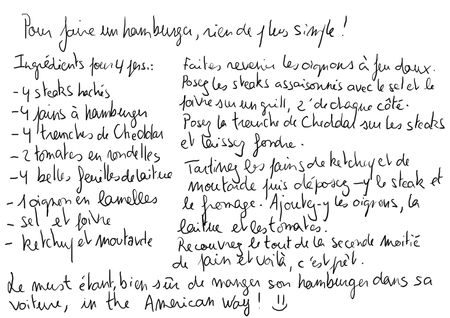 Pour faire un hamburger, rien de plus simple !
Ingrédients pour 4 pers. :
- 4 steaks hachés
- 4 pains à hamburger
- 4 tranches de Cheddar
- 2 tomates en rondelles
- 4 belles feuilles de laitue
- 1 oignon en lamelles
- sel et poivre
- ketchup et moutarde
Faites revenir les oignons à feu doux.
Posez les steaks assaisonnés avec le sel et le
poivre sur un grill, 2' de chaque côté.
Posez la tranche de Cheddar sur les steaks
et laissez fondre.
Tartinez les pains de ketchup et de
moutarde puis déposez-y le steak et
le fromage. Ajoutez-y les oignons, la
laitue et les tomates.
Recouvrez le tout de la seconde moitié
de pain et voilà, c'est prêt.
Le must étant, bien sûr de manger son hamburger dans sa
voiture, in the American Way ! :)